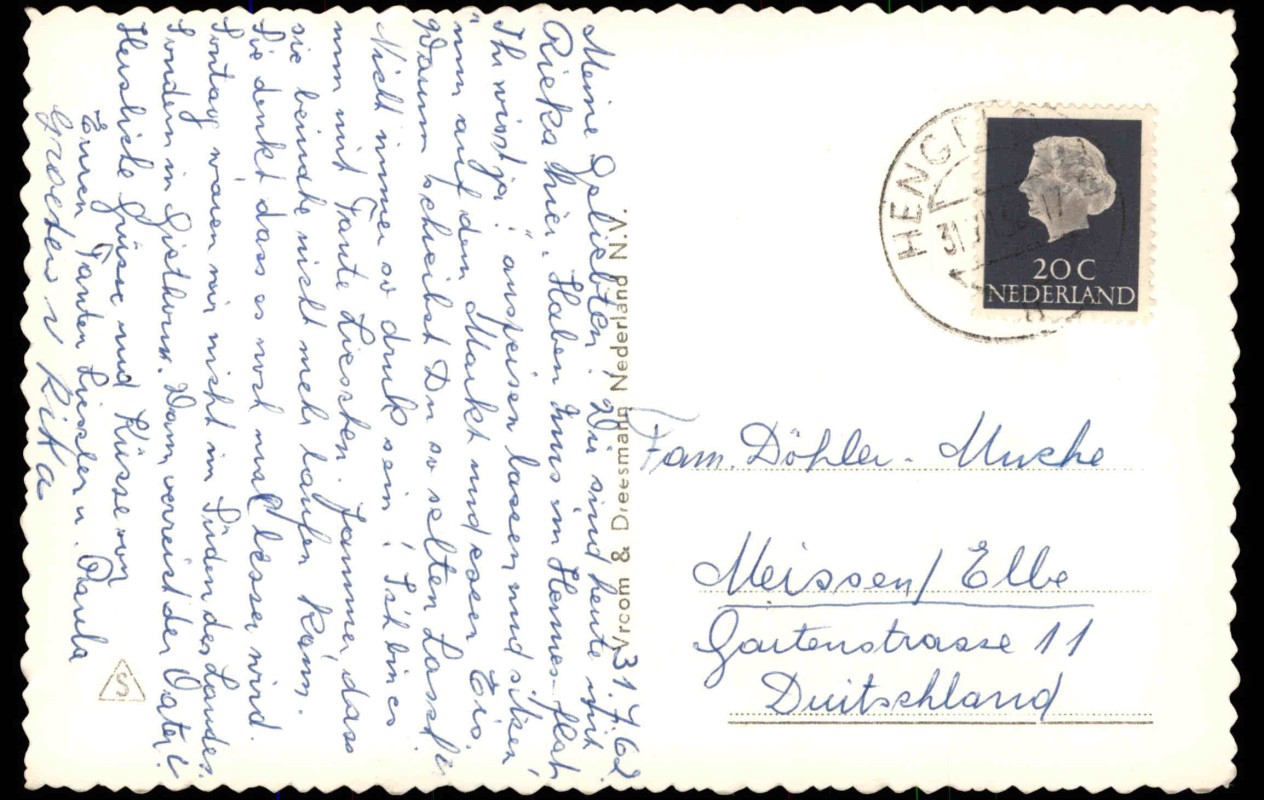 31.7.62
Meine Geliebten! Wir sind heute mit
Rieka hier. Haben uns im Hennes-flat
Ihr wisst ja! "ausspeisen lassen und sitzen
nun auf dem Markt und essen Eis.
Warum schreibst Du so selten Lassel?
Nicht immer so druk sein! Ich bin es
nun mit Tante Lieschen. Jammer dass
sie beinahe nicht mehr laufen kann.
Sie denkt dass es noch mal besser wird.
Sontag waren wir nicht im Süden des Landes
sondern in Giethoorn. Dann verreist der Vater!
Herzliche Grüsse und Küsse von
Euren Tanten Liesslen u. Paula
Groeten v Rika
Vroom & Dreesmann Nederland N.V.
S
HENGELO
31
20 C
NEDERLAND
Fam. Döhler-Muche
Meissen/Elbe
Gartenstrasse 11
Duitschland